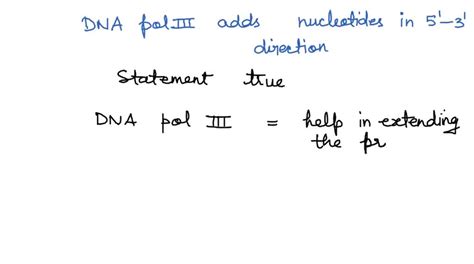 DNA pol III adds nucleotides in 5'-3'
direction
Statement true
DNA pol III = help in extending
the pr